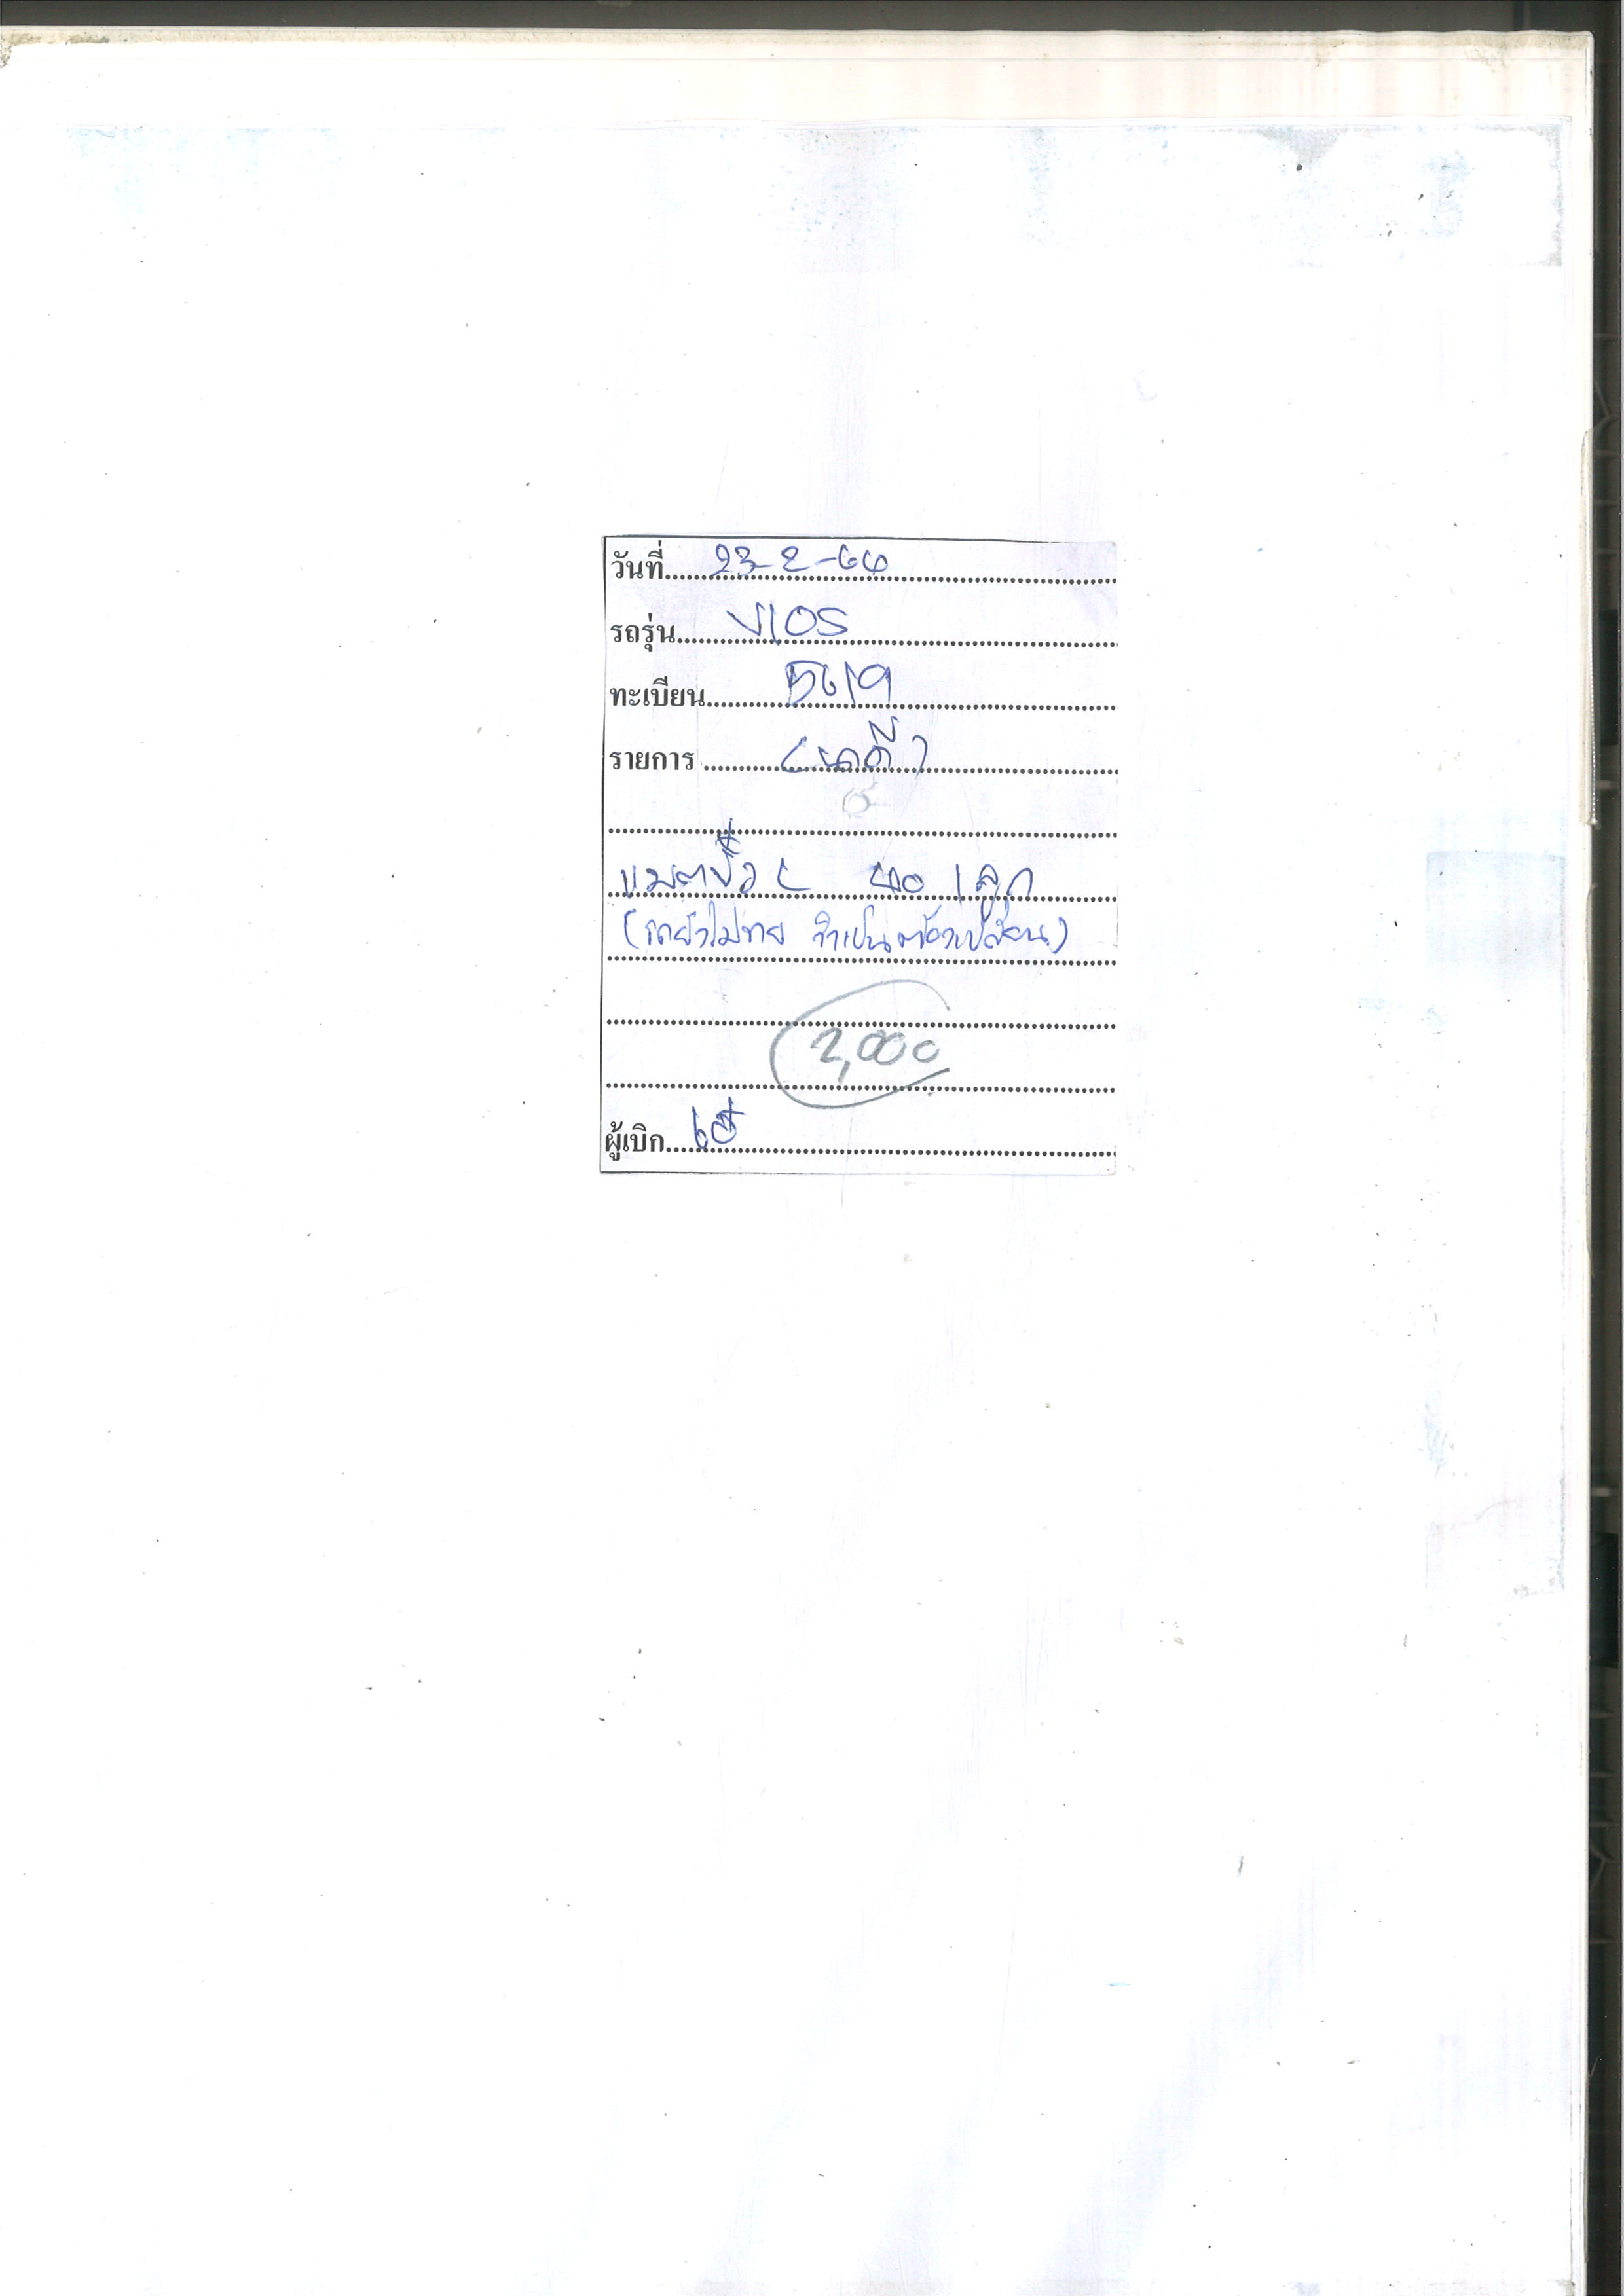 วันที่ 23-2-66
รถรุ่น VIOS
ทะเบียน 5619
รายการ (คดี)
แบตเตอรี่ 40 1 ลูก
(รถยังไม่ขาย จำเป็นต้องเปลี่ยน)
2,000
ผู้เบิก